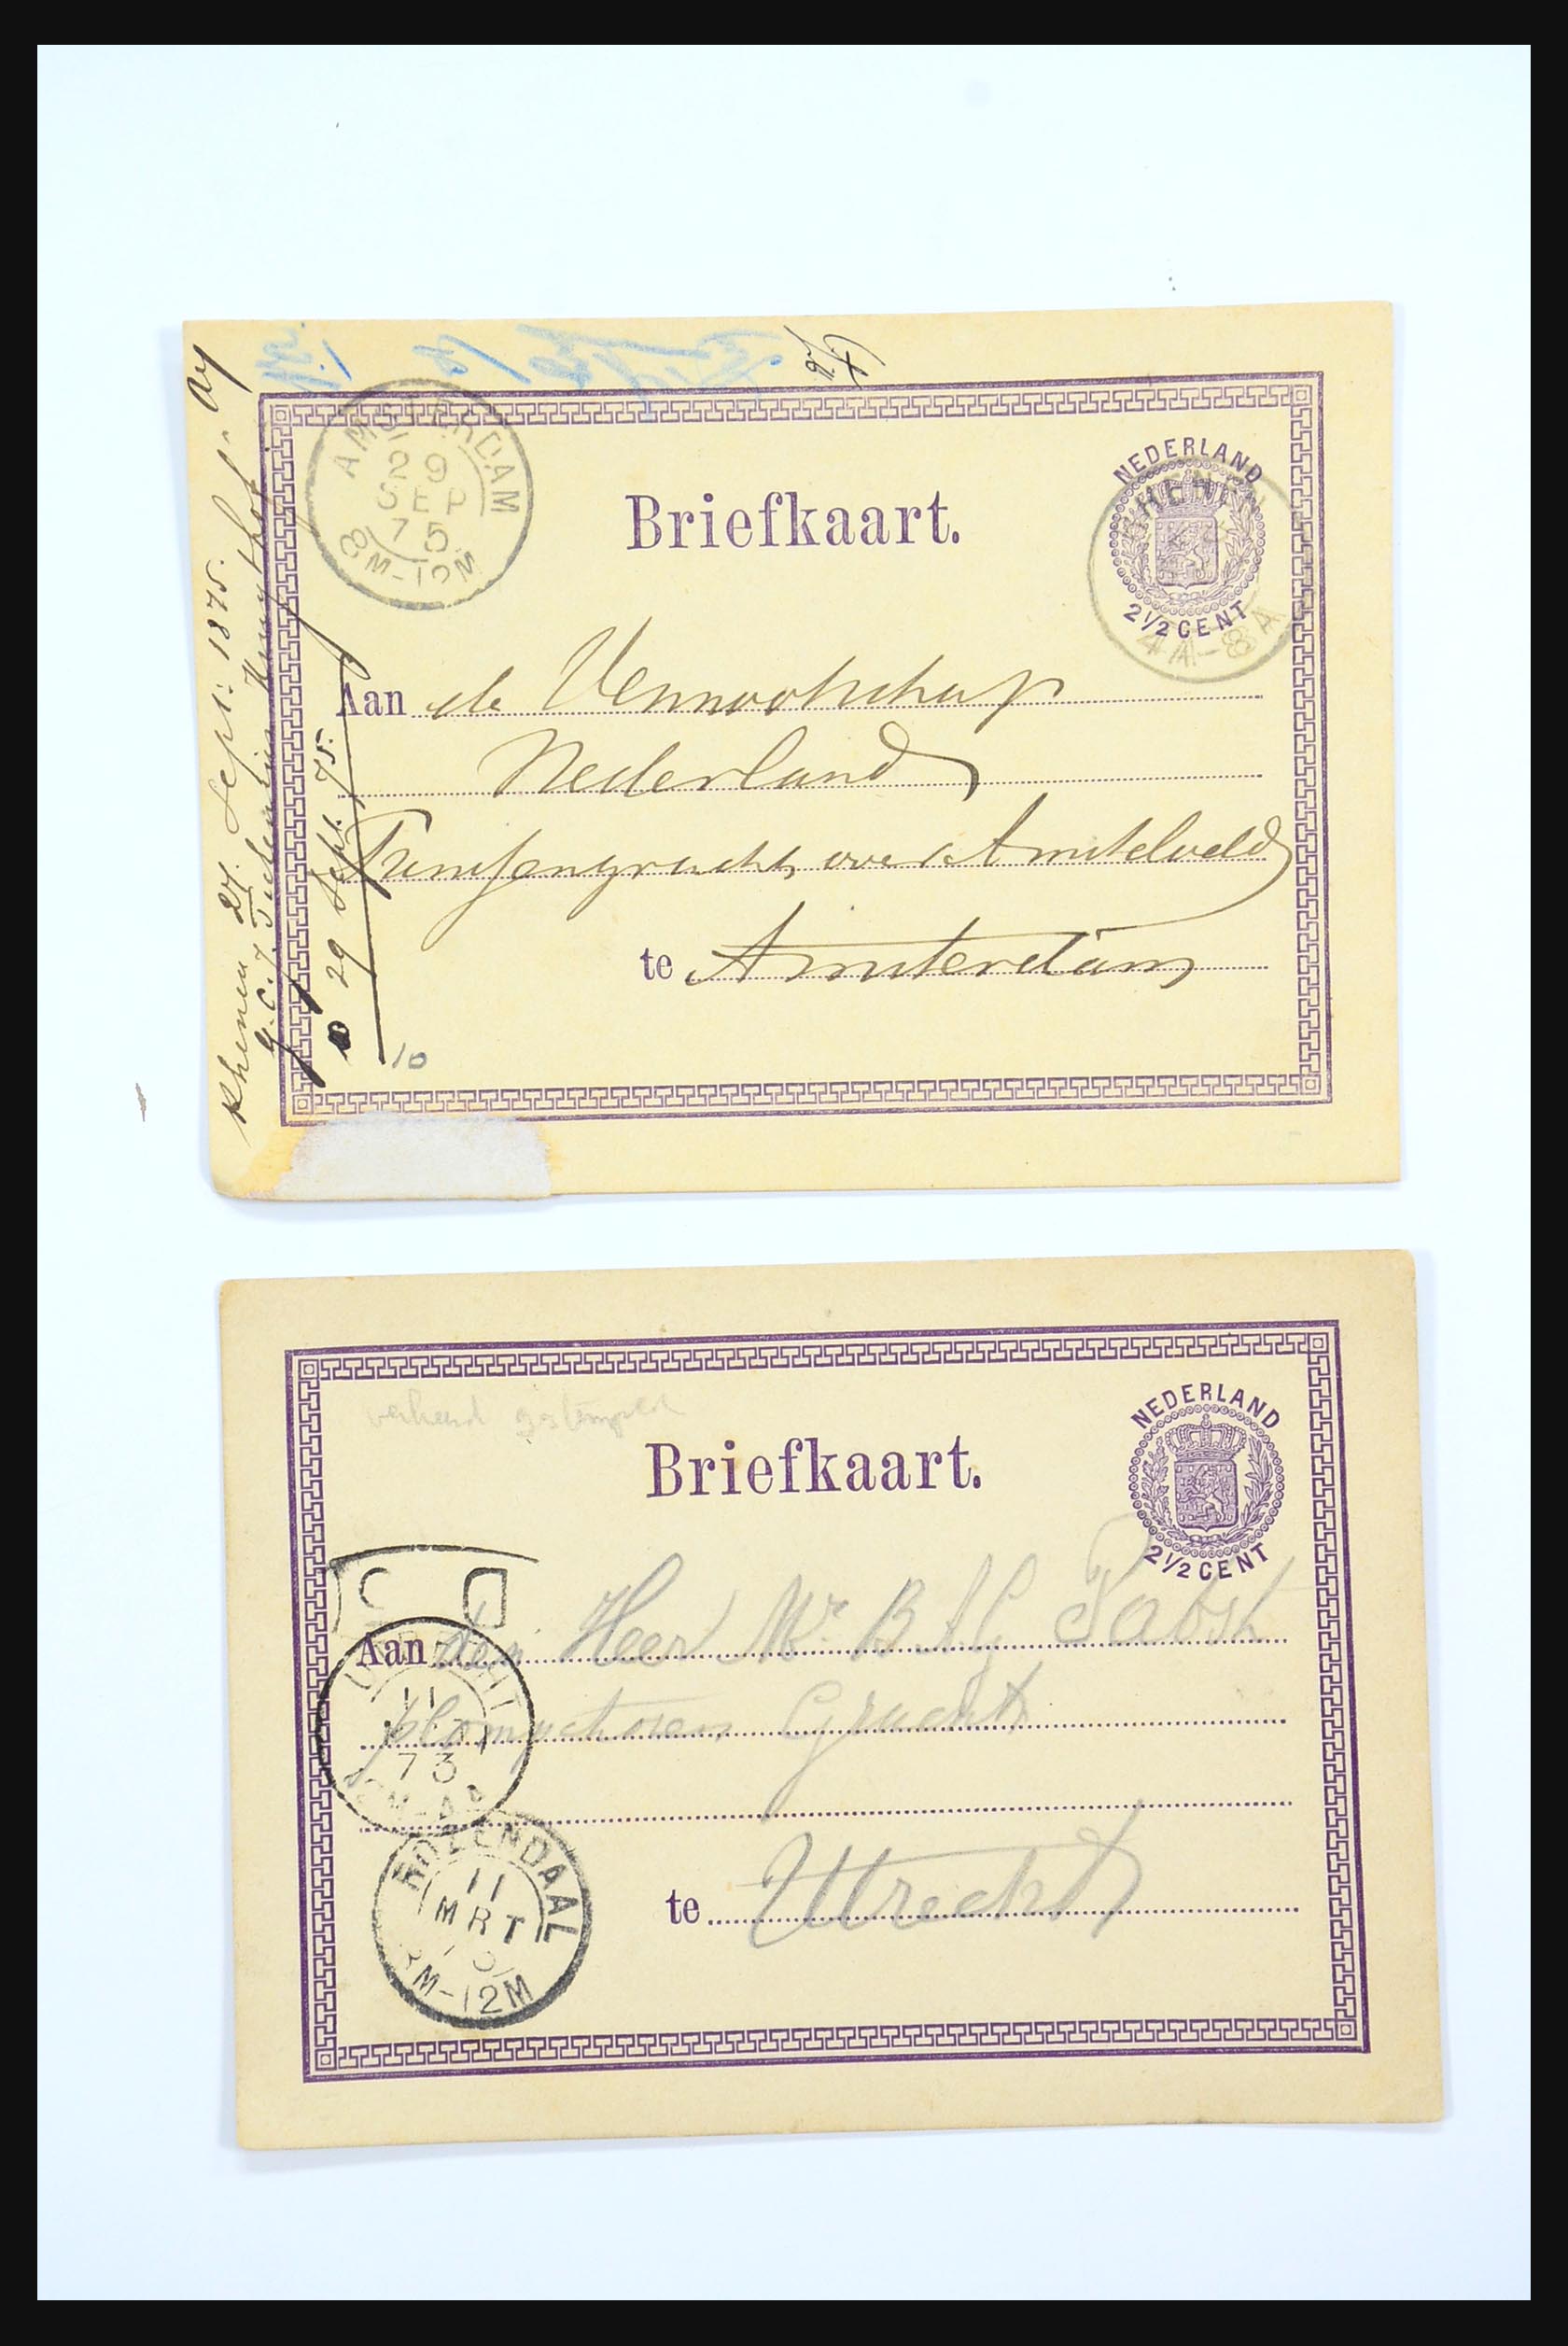 Rhenen 27 Sept: 1875.
29 Sept. 75.
AMSTERDAM
29
SEP
75
8M-12M
Briefkaart.
NEDERLAND
2½ CENT
RHENEN
4A-8A
Aan de Vennootschap
Nederland
Prinsengracht over 't Amstelveld
te Amsterdam
10
verkeerd gestempeld
Briefkaart.
NEDERLAND
2½ CENT
Aan den Heer Mr. B Pabst
plompetoren Gracht
te Utrecht
UTRECHT
11
73
ROZENDAAL
11
MRT
8M-12M